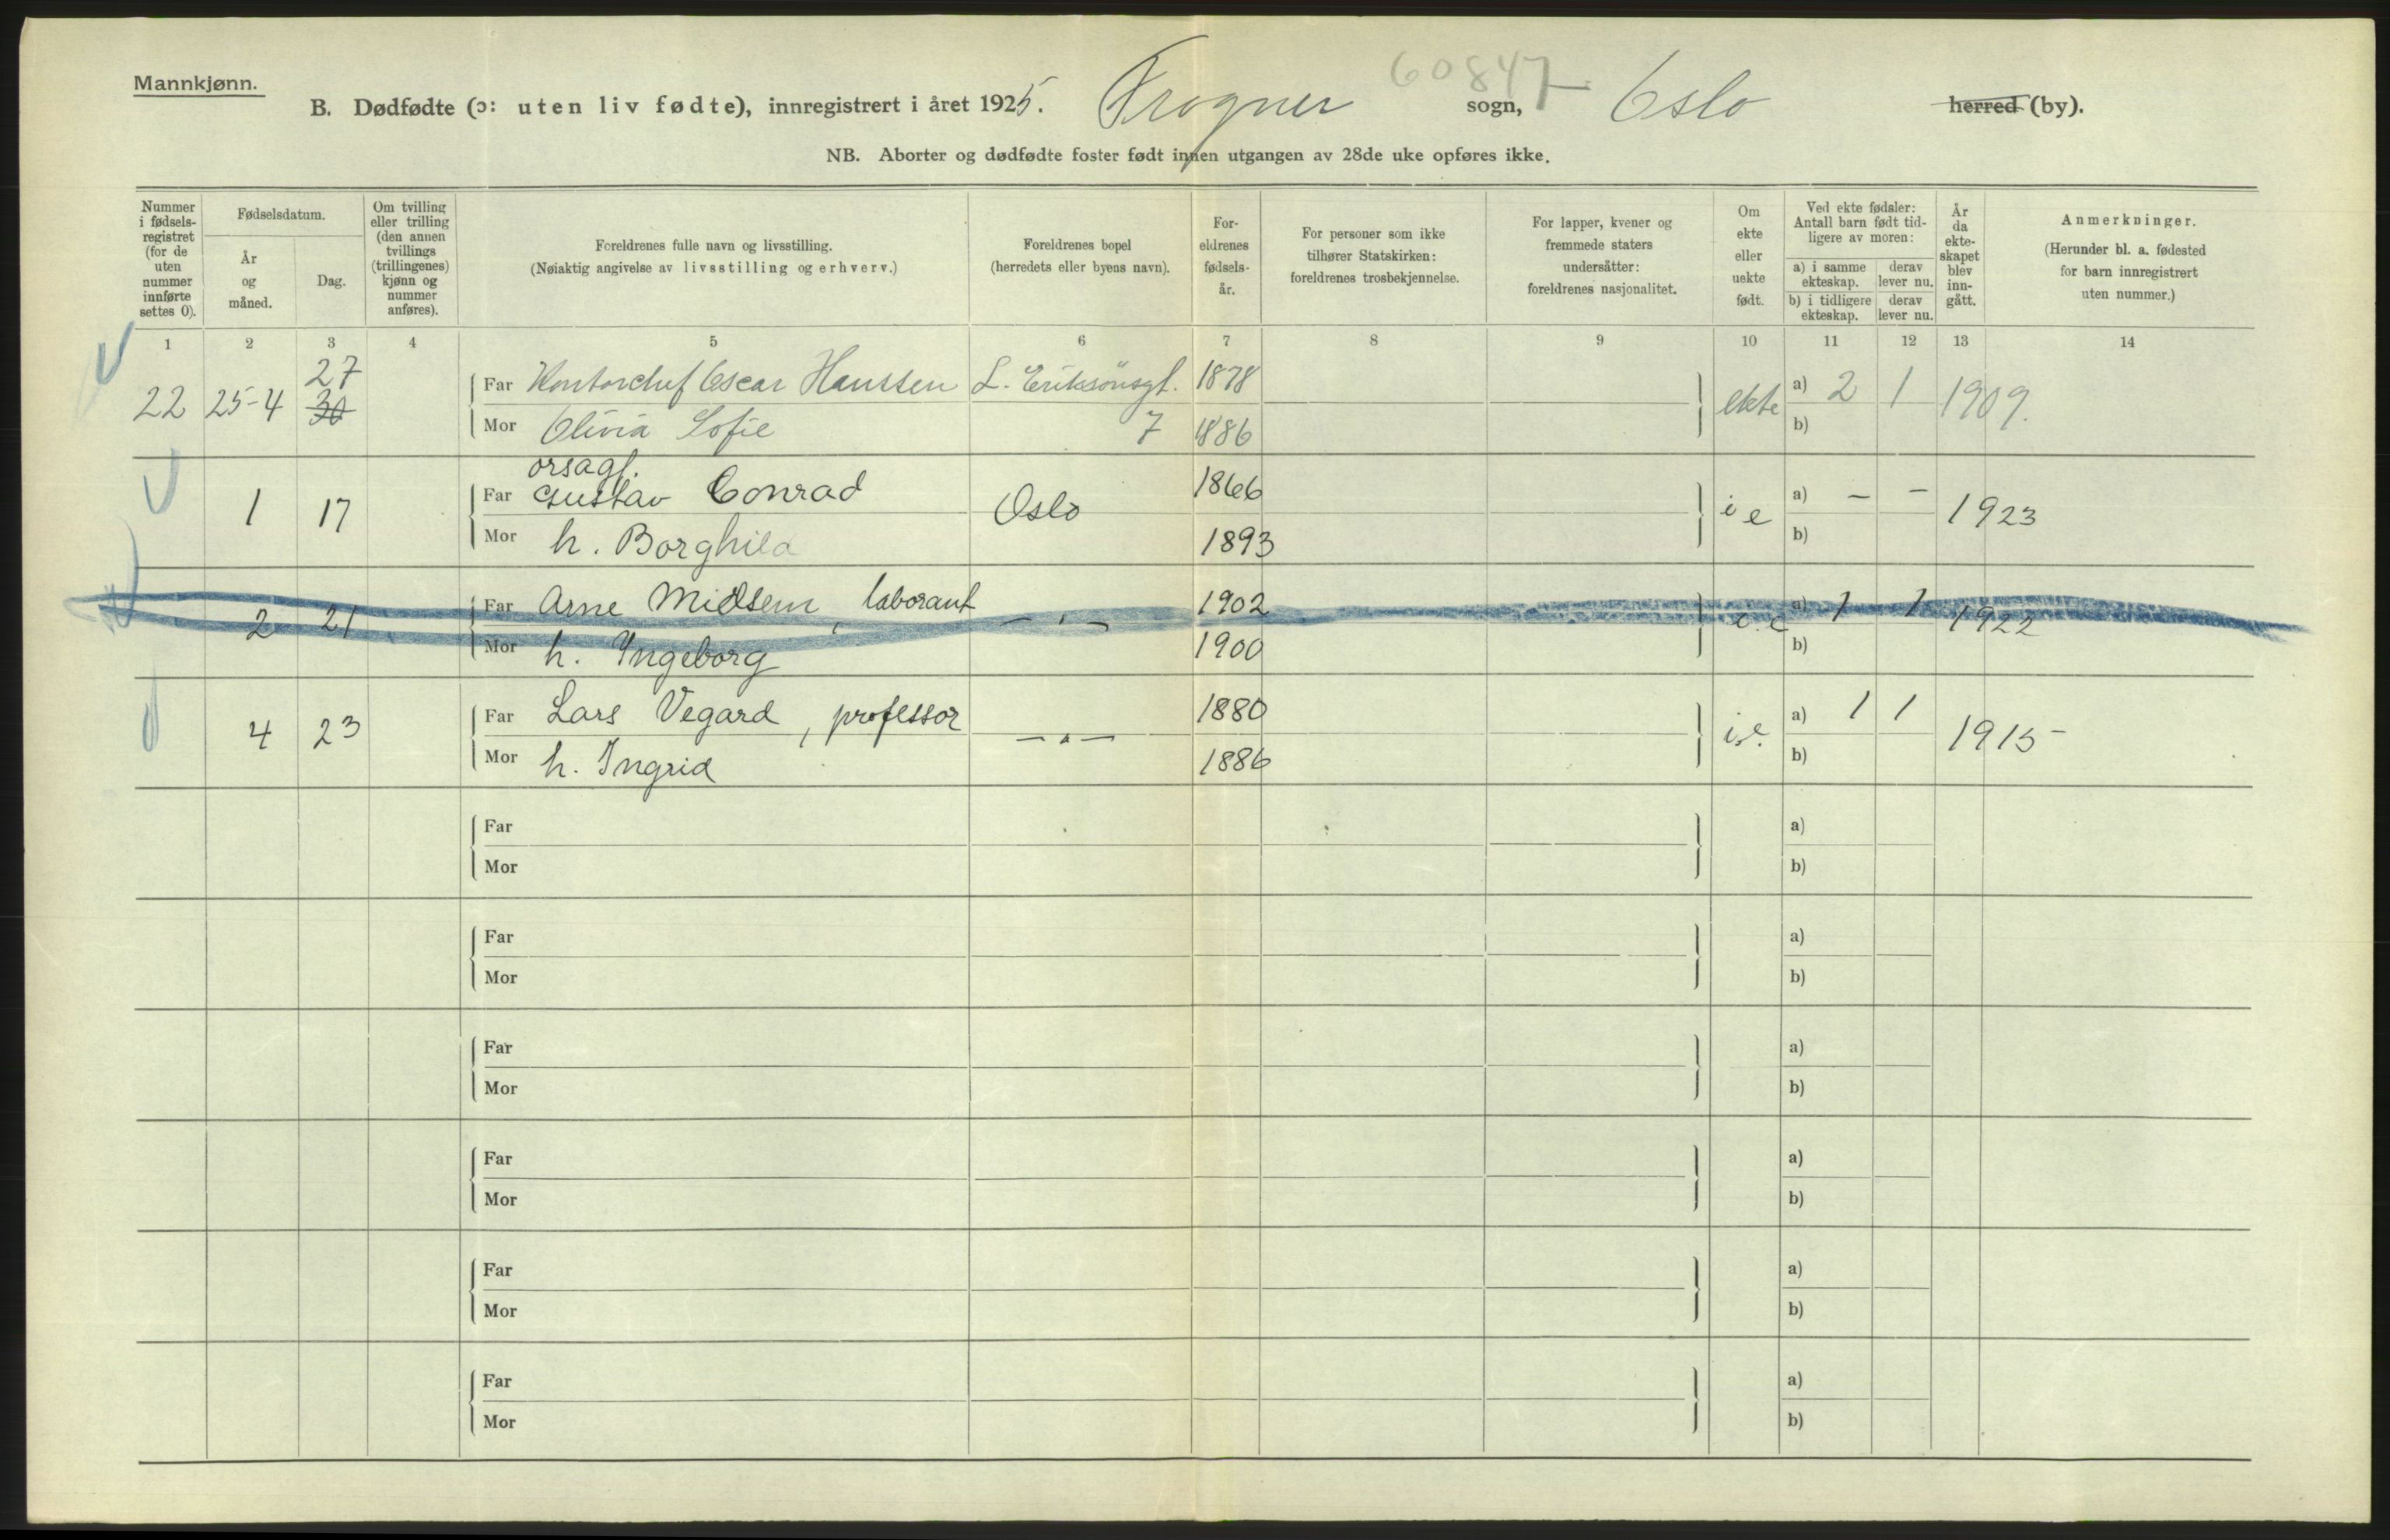 Mannkjønn.
60847
B. Dødfødte (ɔ: uten liv fødte), innregistrert i året 1925. Frogner sogn, Oslo herred (by).
NB. Aborter og dødfødte foster født innen utgangen av 28de uke opføres ikke.
Nummer i fødsels-registret (for de uten nummer innførte settes 0).
Fødselsdatum.
År og måned.
Dag.
Om tvilling eller trilling (den annen tvillings (trillingenes) kjønn og nummer anføres).
Foreldrenes fulle navn og livsstilling.
(Nøiaktig angivelse av livsstilling og erhverv.)
Foreldrenes bopel
(herredets eller byens navn).
For-eldrenes fødsels-år.
For personer som ikke tilhører Statskirken: foreldrenes trosbekjennelse.
For lapper, kvener og fremmede staters undersåtter: foreldrenes nasjonalitet.
Om ekte eller uekte født.
Ved ekte fødsler: Antall barn født tid-ligere av moren:
a) i samme ekteskap.
derav lever nu.
b) i tidligere ekteskap.
derav lever nu.
År da ekte-skapet blev inn-gått.
Anmerkninger.
(Herunder bl. a. fødested for barn innregistrert uten nummer.)
1 2 3 4 5 6 7 8 9 10 11 12 13 14
27
22 25-4 30 Far Kontorchef Oscar Hanssen L. Eriksönsgt. 1878 ekte a) 2 1 1909.
Mor Olivia Sofie 7 1886 b)
orsagf.
1 17 Far Gustav Conrad Oslo 1866 i e a) – – 1923
Mor h. Borghild 1893 b)
2 21 Far Arne Midsem, laborant – " – 1902 i.e a) 1 1 1922
Mor h. Ingeborg 1900 b)
4 23 Far Lars Vegard, professor – " – 1880 i.e. a) 1 1 1915
Mor h. Ingrid 1886 b)
Far a)
Mor b)
Far a)
Mor b)
Far a)
Mor b)
Far a)
Mor b)
Far a)
Mor b)
Far a)
Mor b)